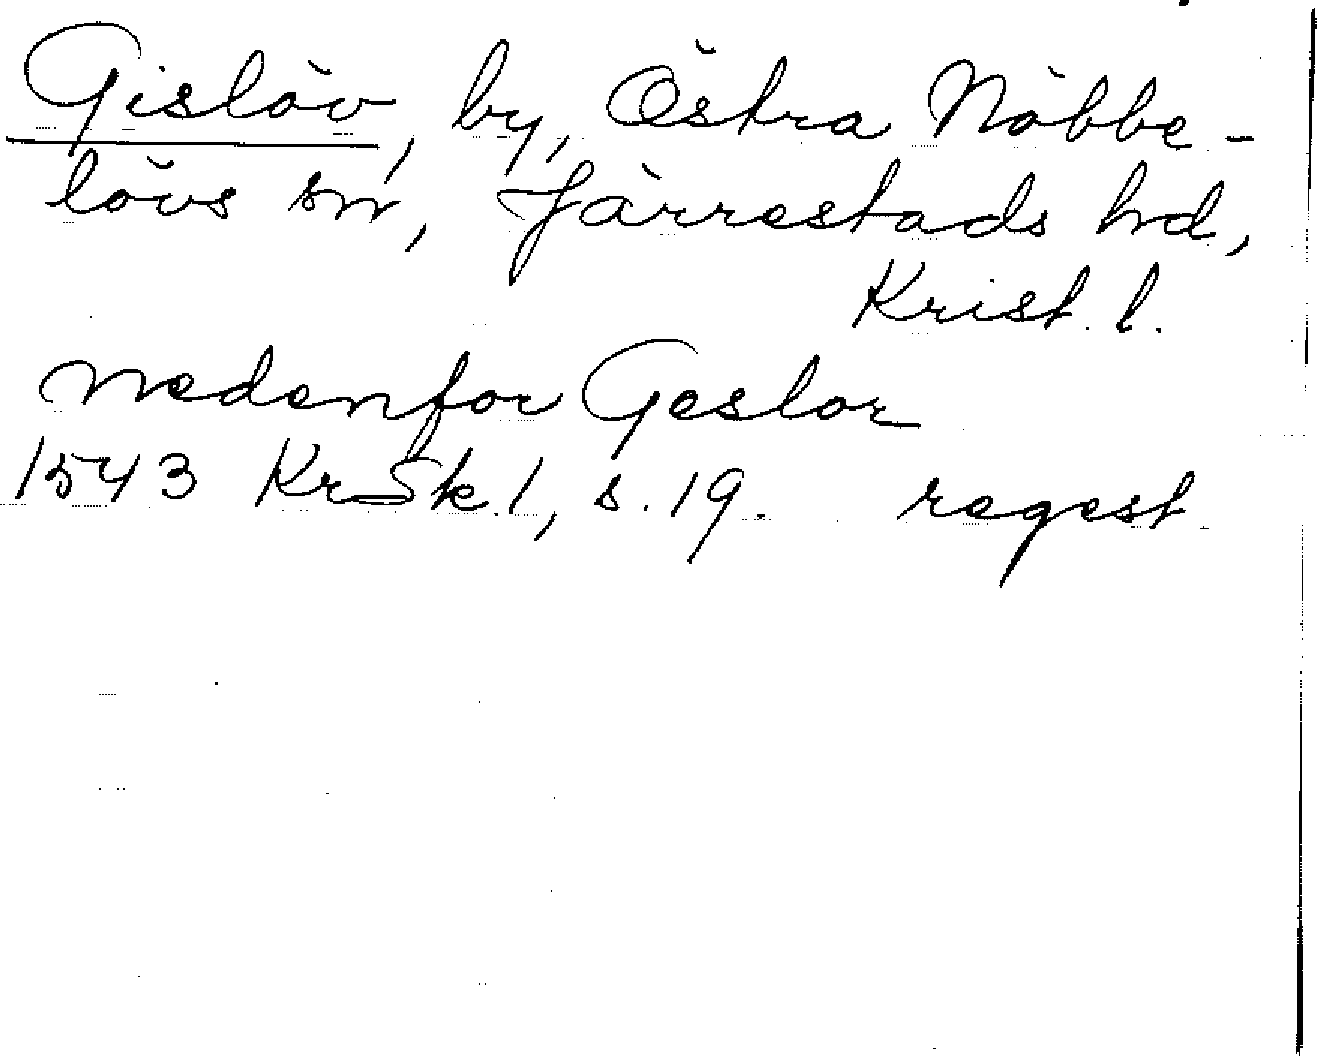 Gislöv, by, Östra Nöbbe-
lövs sn, Järrestads hd,
Krist. l.
nedenfor Geslor
1543 KrSk. 1, s. 19. regest.